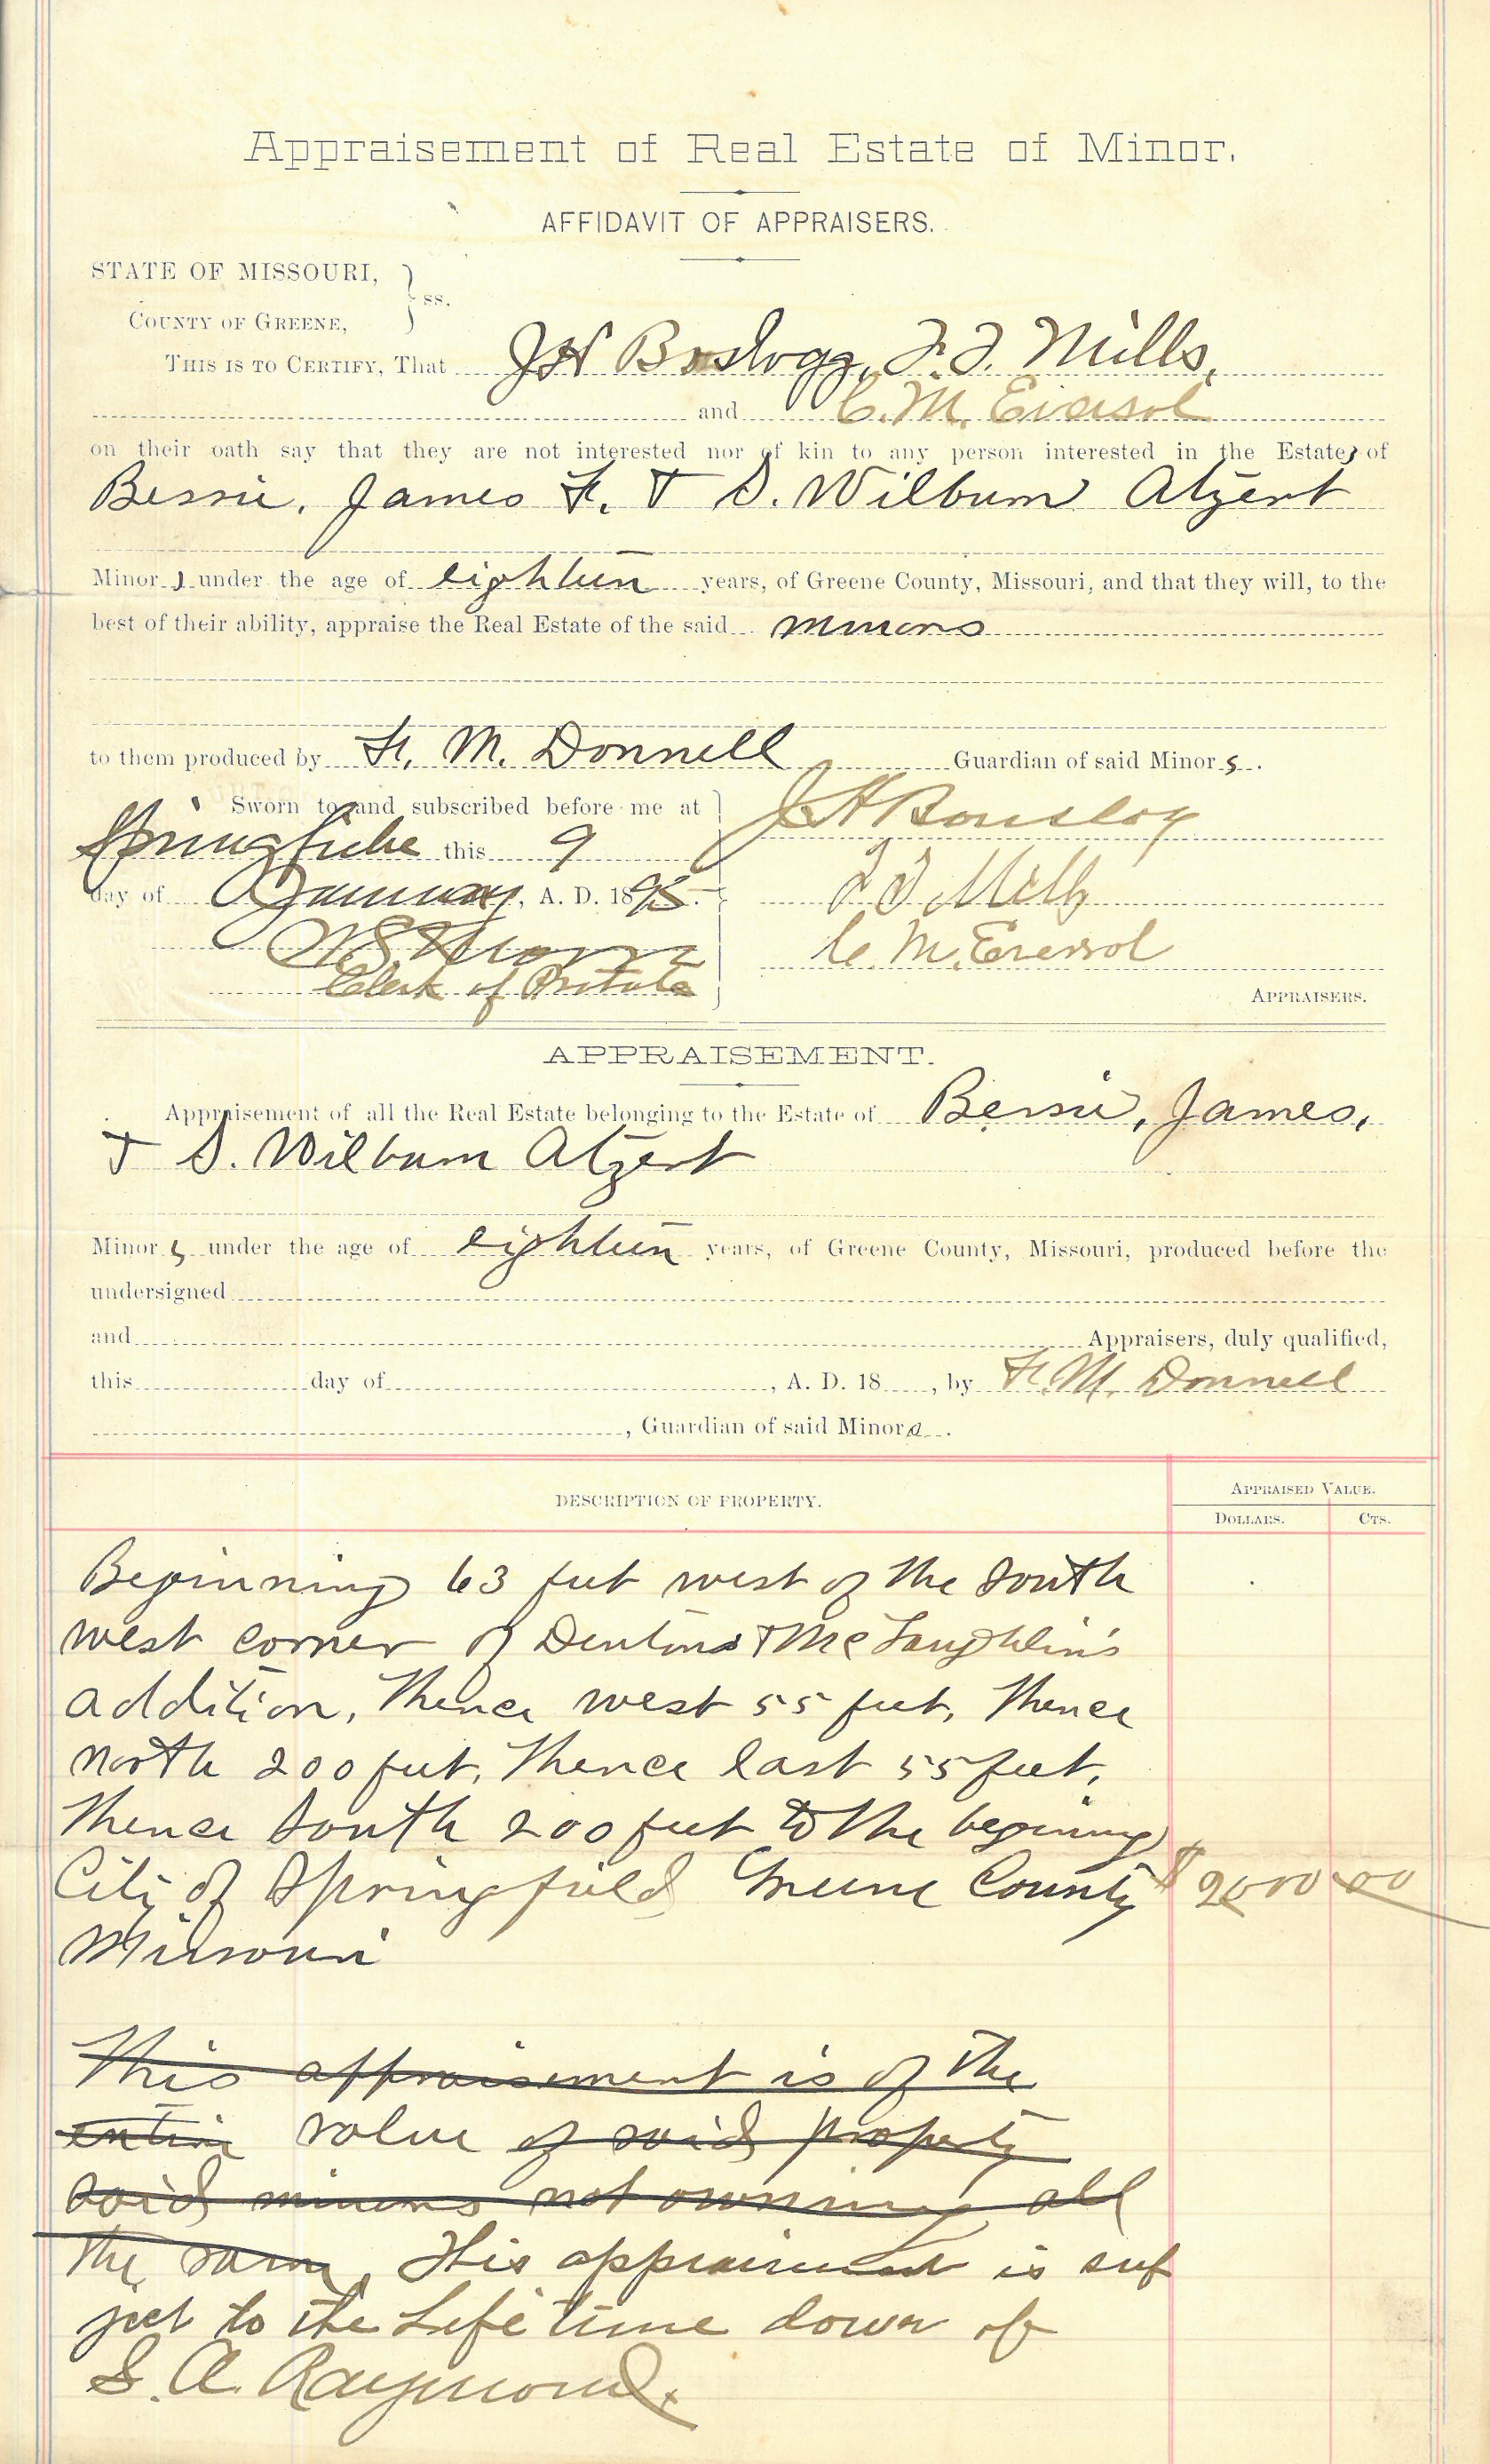 Appraisement of Real Estate of Minor.
AFFIDAVIT OF APPRAISERS.
STATE OF MISSOURI,
COUNTY OF GREENE, } ss.
THIS IS TO CERTIFY, That J H Bouslogg, F. F. Mills,
and C. M. Eversol
on their oath say that they are not interested nor of kin to any person interested in the Estates of
Bessie, James F. & S. Wilburn Atzert
Minors under the age of eighteen years, of Greene County, Missouri, and that they will, to the
best of their ability, appraise the Real Estate of the said minors
to them produced by F. M. Donnell Guardian of said Minors.
Sworn to and subscribed before me at
Springfield this 9
day of January, A. D. 1895.
Clerk of Probate
J H Bouslog
F F Mills
C. M. Eversol
APPRAISERS.
APPRAISEMENT.
Appraisement of all the Real Estate belonging to the Estate of Bessie, James,
& S. Wilburn Atzert
Minors under the age of eighteen years, of Greene County, Missouri, produced before the
undersigned
and Appraisers, duly qualified,
this day of , A. D. 18 , by F. M. Donnell
, Guardian of said Minors.
DESCRIPTION OF PROPERTY.
APPRAISED VALUE.
DOLLARS. CTS.
Beginning 63 feet west of the South
west corner of Dentons & McLaughlin's
addition, Thence west 55 feet, Thence
north 200 feet, Thence East 55 feet,
Thence South 200 feet to the beginning
City of Springfield Greene County $2000 00
Missouri
This appraisement is of the
entire value of said property
said minors not owning all
the same, This appraisment is sub
ject to the Life time dower of
S. A. Raymond.